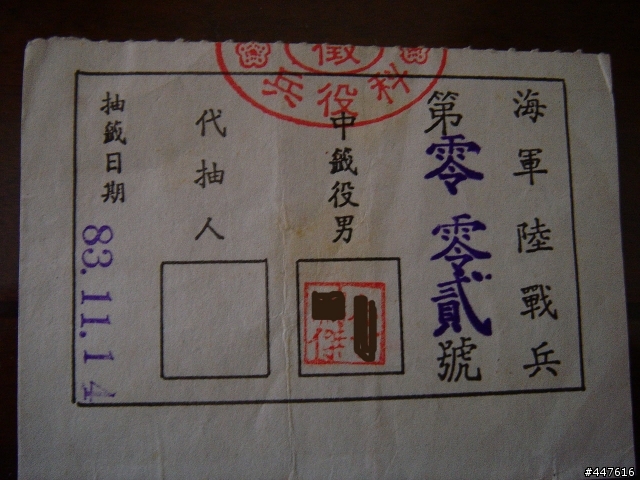 徵
兵役科
海軍陸戰兵
第零零貳號
中籤役男
傑
代抽人
抽籤日期
83.11.14
#447616